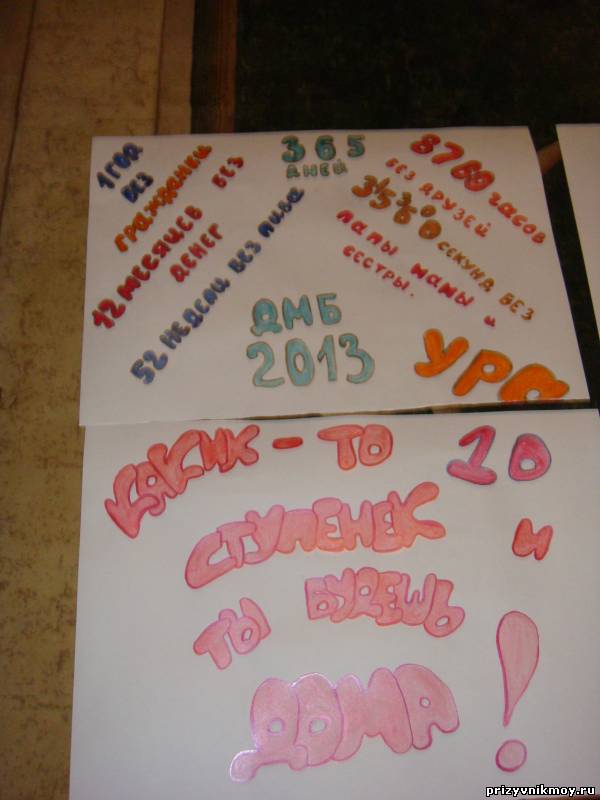 1 ГОД
БЕЗ
ГРАЖДАНКИ
12 МЕСЯЦЕВ БЕЗ
ДЕНЕГ
52 НЕДЕЛИ БЕЗ ПИВА
365
ДНЕЙ
8760 часов
БЕЗ ДРУЗЕЙ
СЕКУНД БЕЗ
ПАПЫ МАМЫ И
СЕСТРЫ.
ДМБ
2013
УРА
КАКИХ-ТО 10
СТУПЕНЕК И
ТЫ БУДЕШЬ
ДОМА!
prizyvnikmoy.ru